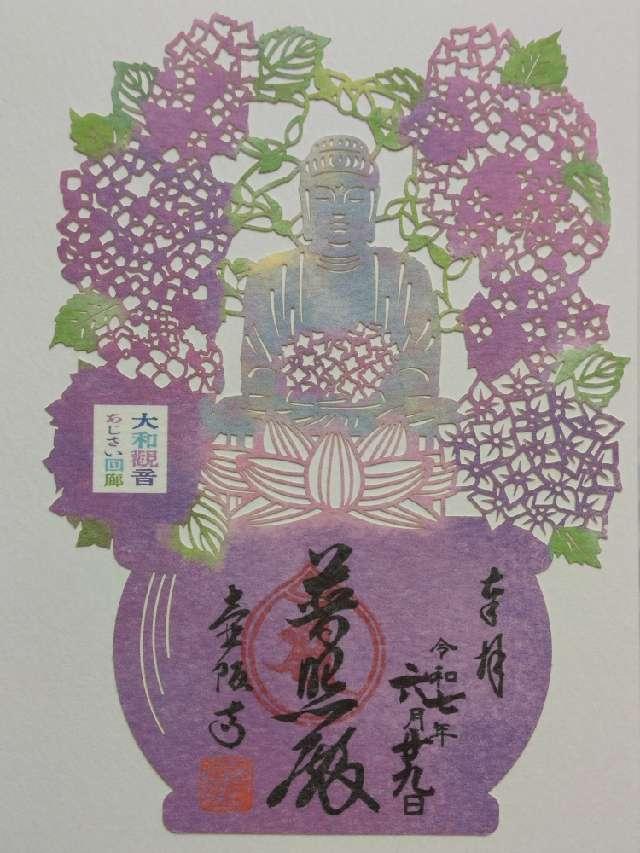 大和觀音
あじさい回廊
奉拝
令和七年
六月廿九日
普照殿
壷阪寺